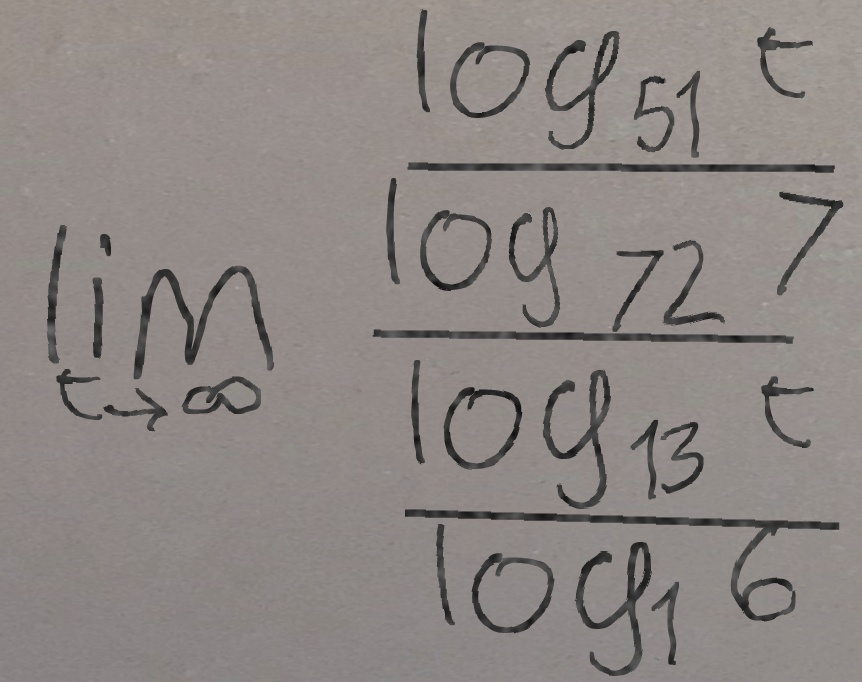 lim t→∞
log 51 t
log 72 7
log 13 t
log 1 6